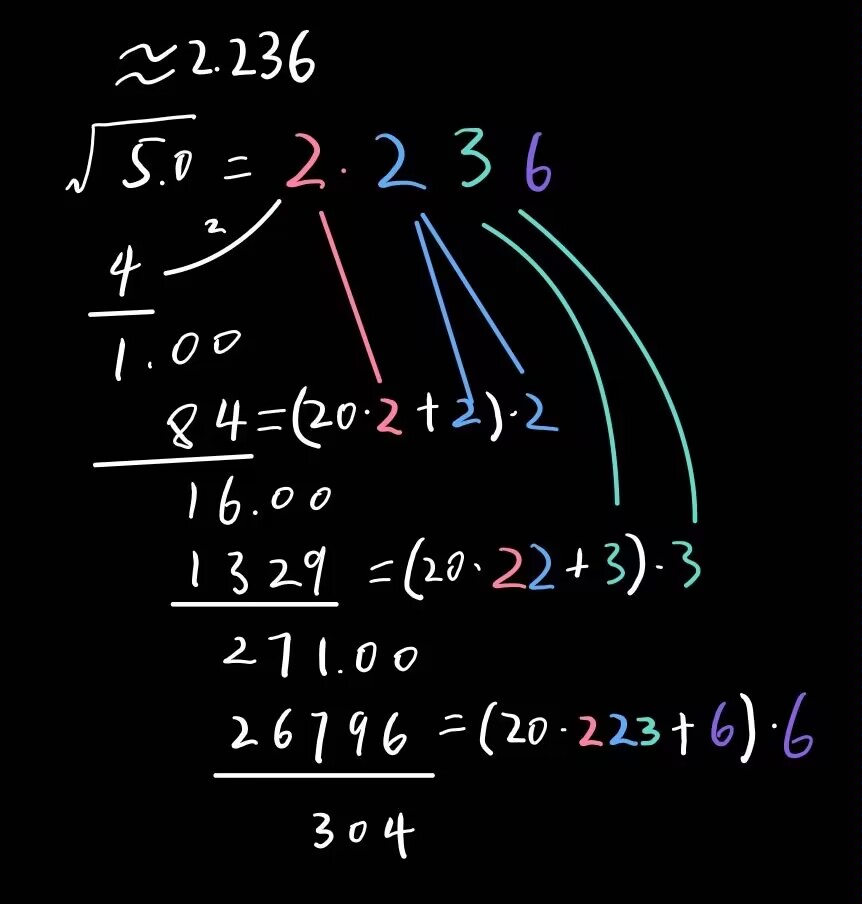 ≈2.236
√5.0 = 2.236
2
4
1.00
84=(20·2+2)·2
16.00
1329 =(20·22+3)·3
271.00
26796 =(20·223+6)·6
304